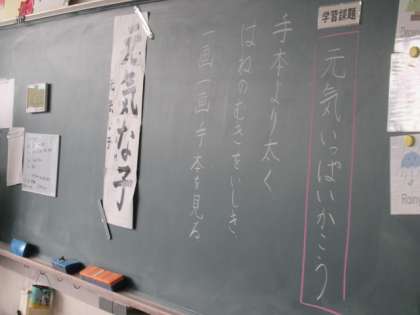 学習課題
元気いっぱいかこう
手本より太く
はねのむきをいしき
一画一画手本を見る
元気な子
Rain